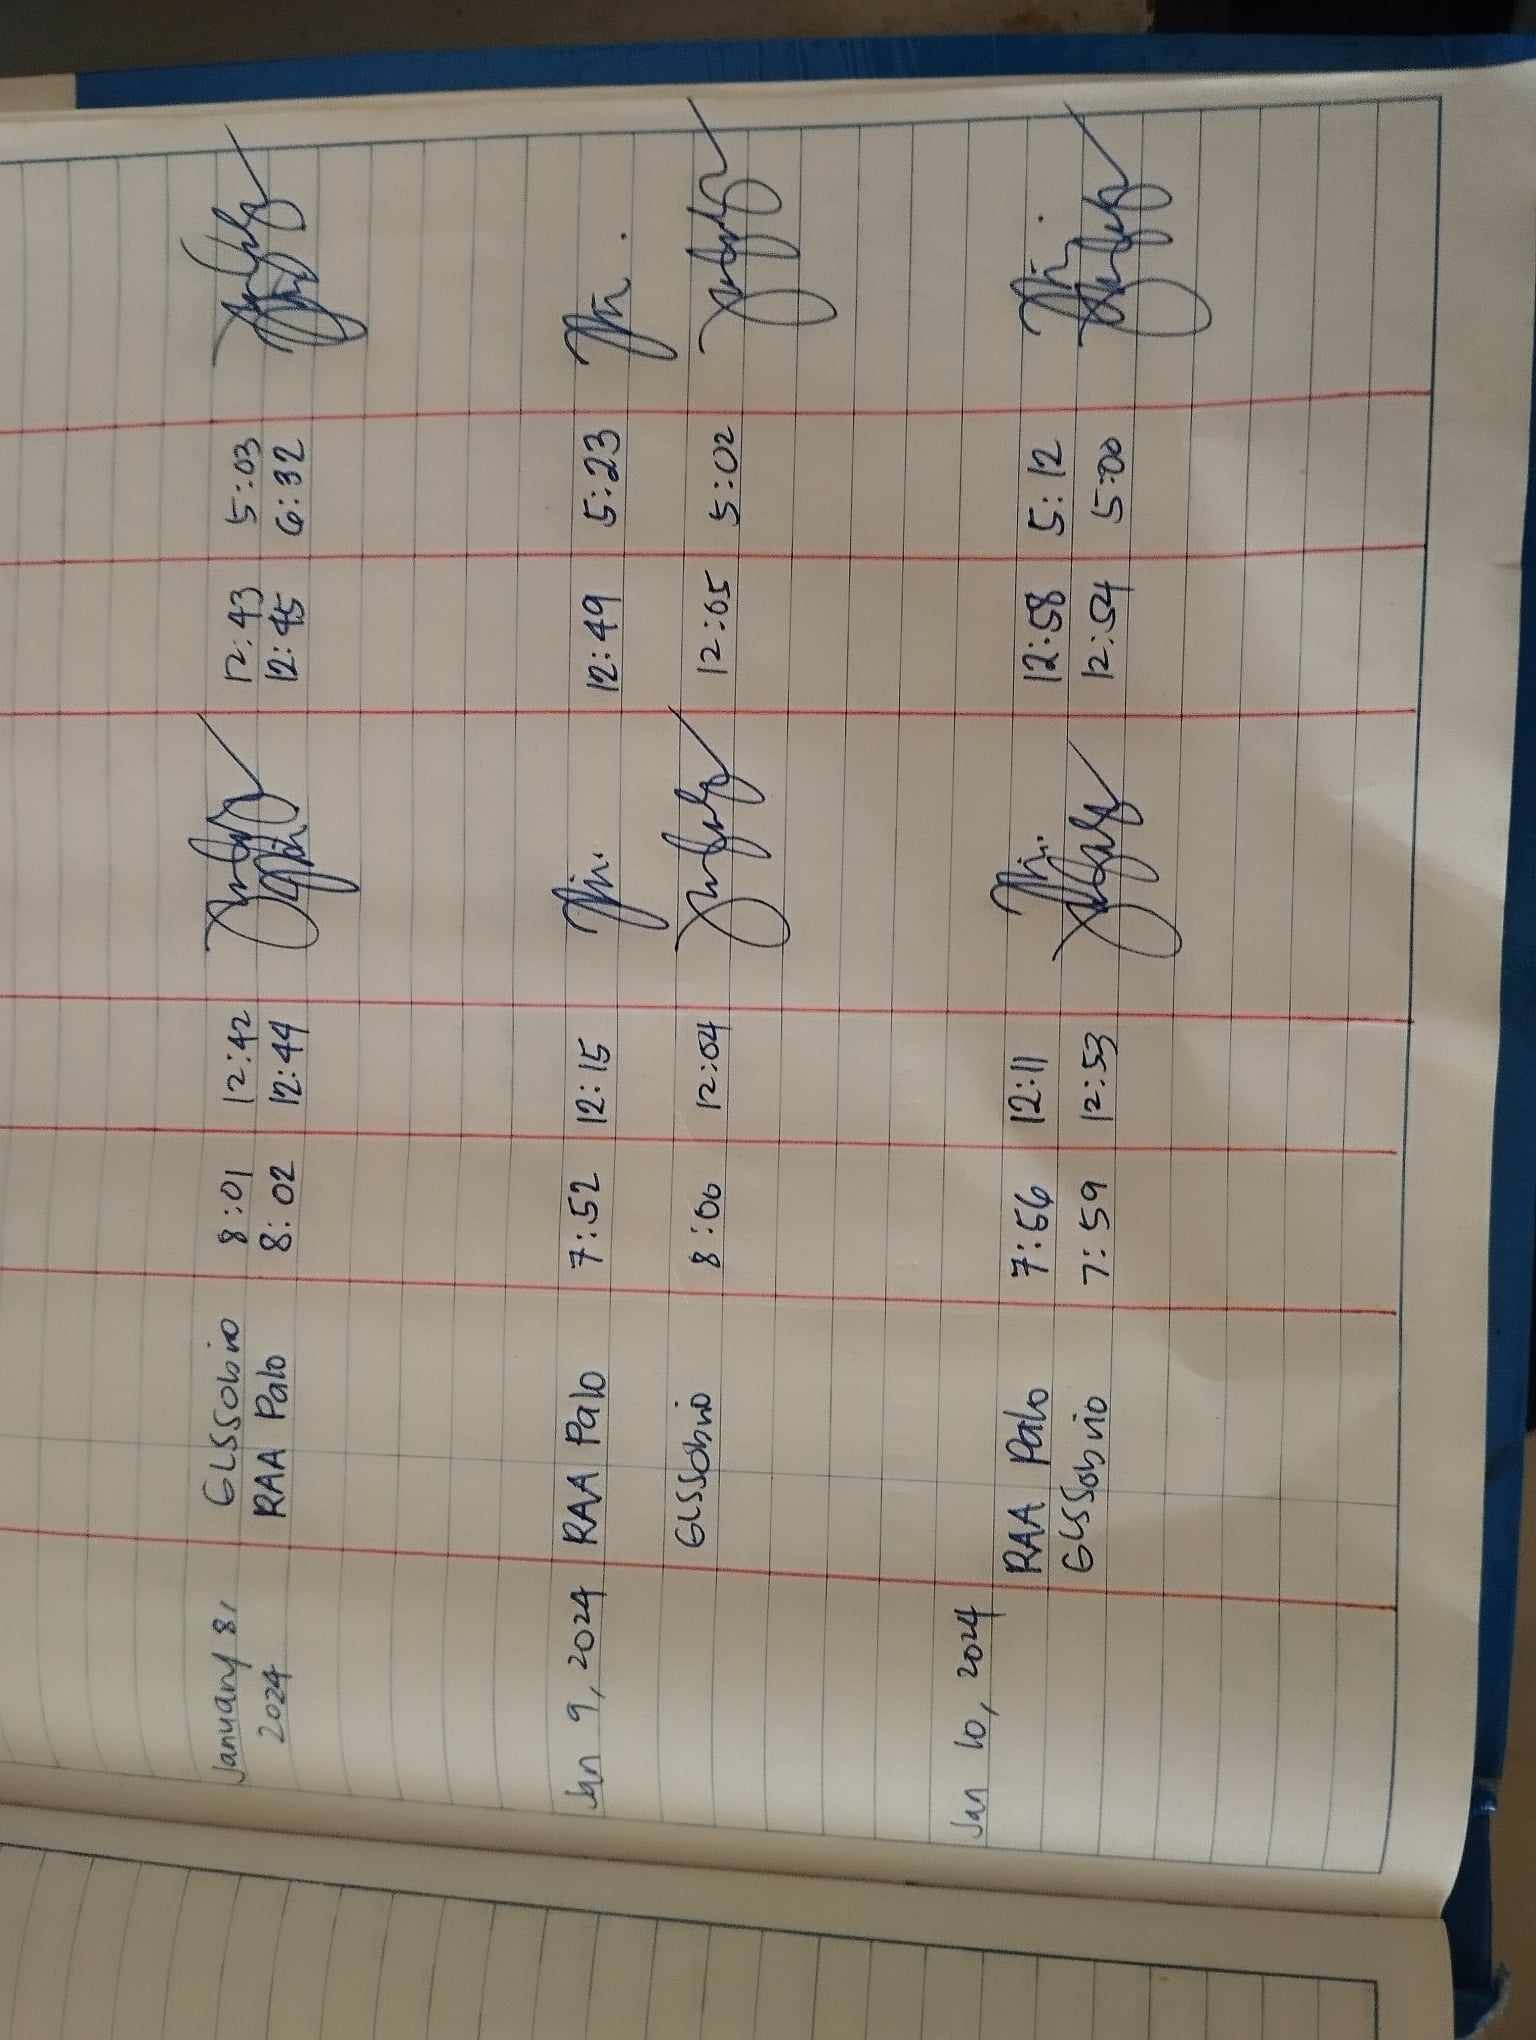 January 8, GLSSobino 8:01 12:42 12:43 5:03
2024 RAA Palo 8:02 12:44 12:45 6:32
Jan 9, 2024 RAA Palo 7:52 12:15 12:49 5:23
GLSSobino 8:00 12:04 12:05 5:02
Jan 10, 2024
RAA Palo 7:56 12:11 12:58 5:12
GLSSobino 7:59 12:53 12:54 5:00